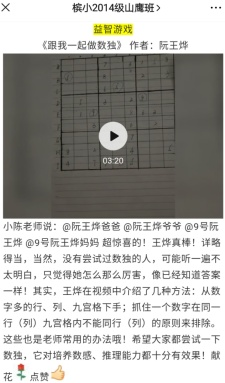 槟小2014级山鹰班>
益智游戏
《跟我一起做数独》 作者：阮王烨
03:20
小陈老师说：@阮王烨爸爸 @阮王烨爷爷 @9号阮
王烨 @9号阮王烨妈妈 超惊喜的！王烨真棒！详略
得当，当然，没有尝试过数独的人，可能听一遍不
太明白，只觉得她怎么那么厉害，像已经知道答案
一样！其实，王烨在视频中介绍了几种方法：从数
字多的行、列、九宫格下手；抓住一个数字在同一
行（列）九宫格内不能同行（列）的原则来排除。
这些也是老师常用的办法哦！希望大家都尝试一下
数独，它对培养数感、推理能力都十分有效果！献
花🌹点赞👍